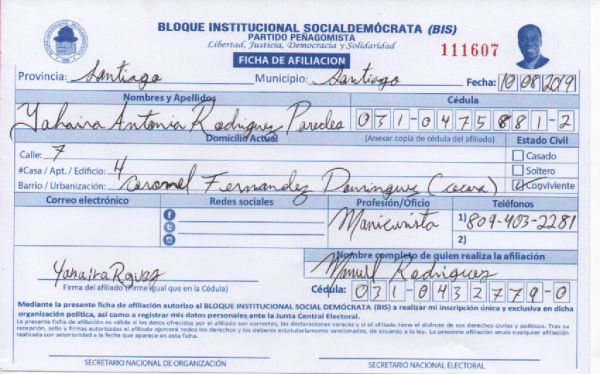 BLOQUE INSTITUCIONAL SOCIALDEMÓCRATA (BIS)
PARTIDO PEÑAGOMISTA
Libertad, Justicia, Democracia y Solidaridad
111607
FICHA DE AFILIACION
Provincia: Santiago Municipio: Santiago Fecha: 10 08 2019
Nombres y Apellidos Cédula
Yahaira Antonia Rodriguez Paredes 031-0475881-2
Domicilio Actual (Anexar copia de cédula del afiliado) Estado Civil
Calle: 7 Casado
#Casa / Apt. / Edificio: 4 Soltero
Barrio / Urbanización: Coronel Fernandez Dominguez Conviviente
Correo electrónico Redes sociales Profesión/Oficio Teléfonos
Manicurista 1) 809-403-2281
2)
Nombre completo de quien realiza la afiliación
Manuel Rodriguez
Firma del afiliado (Firme igual que en la Cédula) Cédula: 031-0432779-0
Mediante la presente ficha de afiliación autorizo al BLOQUE INSTITUCIONAL SOCIAL DEMÓCRATA (BIS) a realizar mi inscripción única y exclusiva en dicha
organización política, así como a registrar mis datos personales ante la Junta Central Electoral.
La presente ficha de afiliación es válida si los datos ofrecidos por el afiliado son correctos, las declaraciones veraces y si el afiliado tiene el disfrute de sus derechos civiles y políticos. Tras su
recepción, sello y firmas autorizadas el afiliado ejercerá todos los derechos y los deberes estatutariamente sancionados, de acuerdo a la ley. La presente afiliación anula cualquier afiliación
realizada con anterioridad a la fecha que aparece en esta ficha.
SECRETARIO NACIONAL DE ORGANIZACIÓN SECRETARIO NACIONAL ELECTORAL